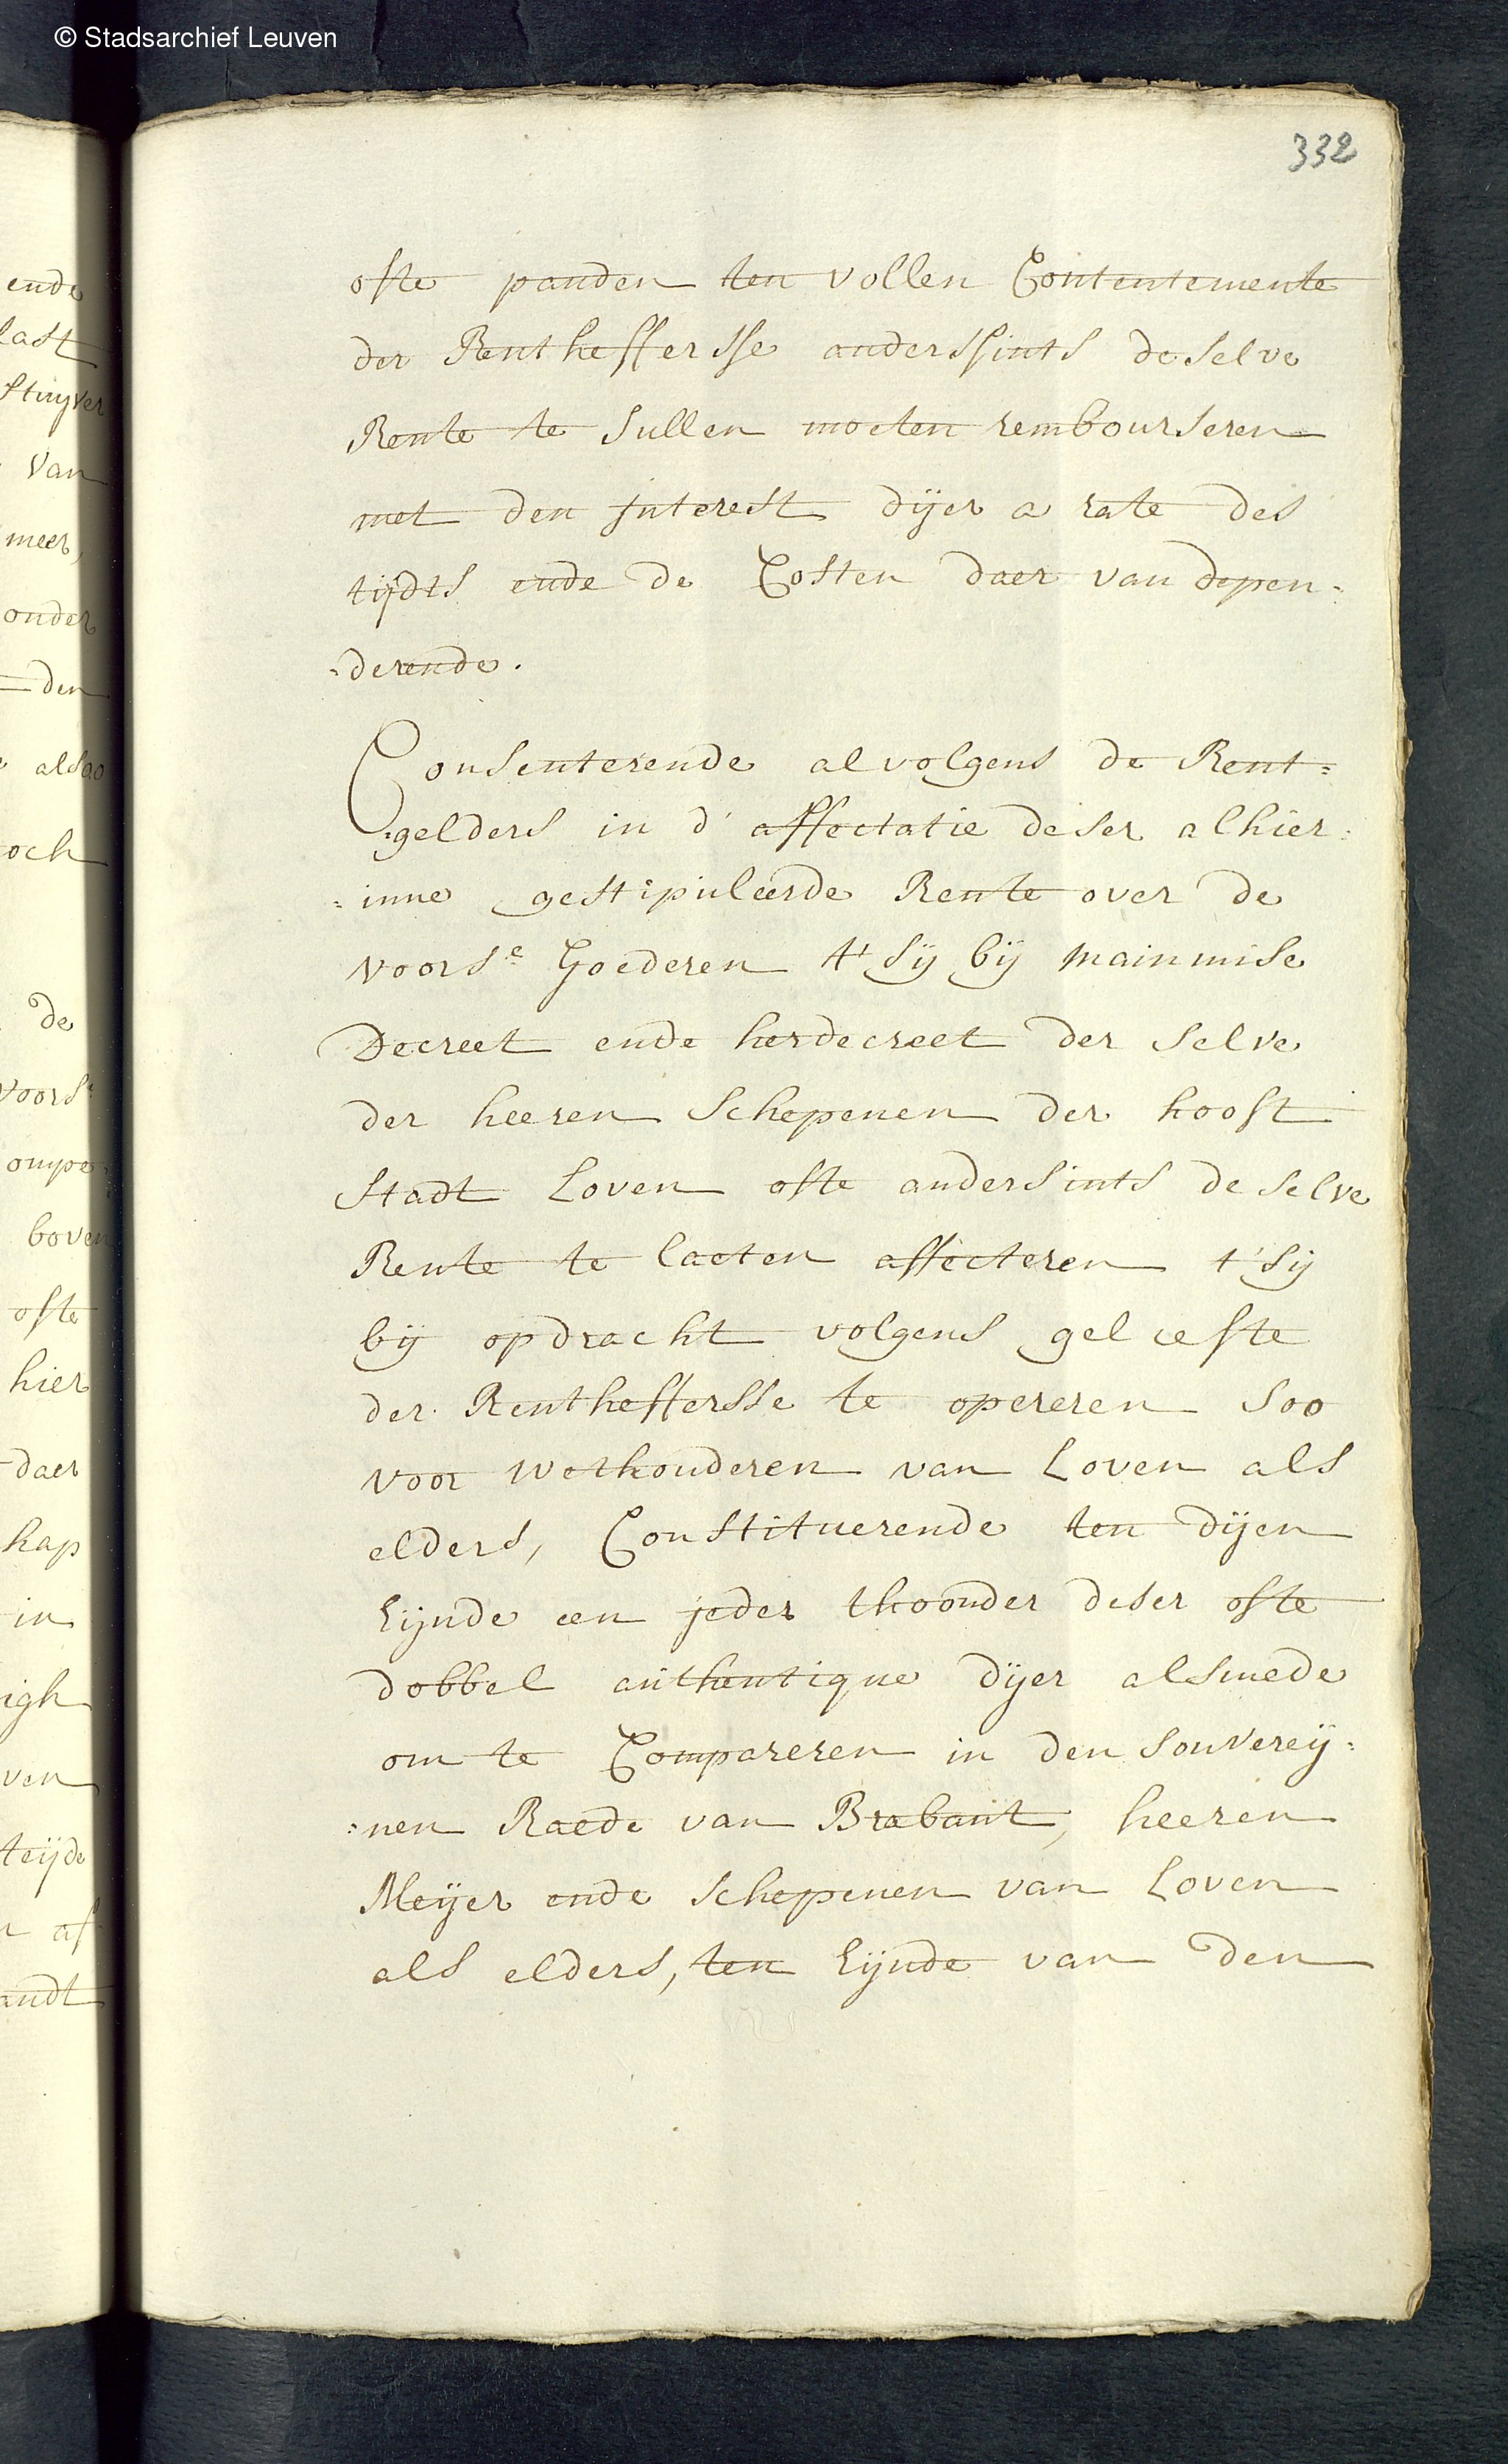 © Stadsarchief Leuven
332
ofte panden ten vollen Contentemente
der Rentheffersse anderssints deselve
Rente te sullen moeten rembourseren
met den interest dijer a rate des
tijdts ende de Costen daer van depen=
=derende.
Consenterende alvolgens de Rent=
=gelders in d'affectatie deser alhier=
=inne gestipuleerde Rente over de
voors.e Goederen t'sij bij mainmise
Decreet ende herdecreet der selve
der heeren Schepenen der hooft
Stadt Loven ofte andersints deselve
Rente te laeten affecteren t'sij
bij opdracht volgens gelieste
der Rentheffersse te opereren soo
voor wethouderen van Loven als
elders, Constituerende ten dijen
Eijnde een jeder thoonder deser ofte
dobbel authentique dijer alsmede
om te Compareren in den souverij=
=nen Raede van Brabant, heeren
Meijer ende schepenen van Loven
als elders, ten Eijnde van den
ende
last
stuijver
van
meer,
onder
=den
alsoo
och
de
voors.e
ompe
boven
ofte
hier
daer
hap
in
igh
ven
teijde
af
andt